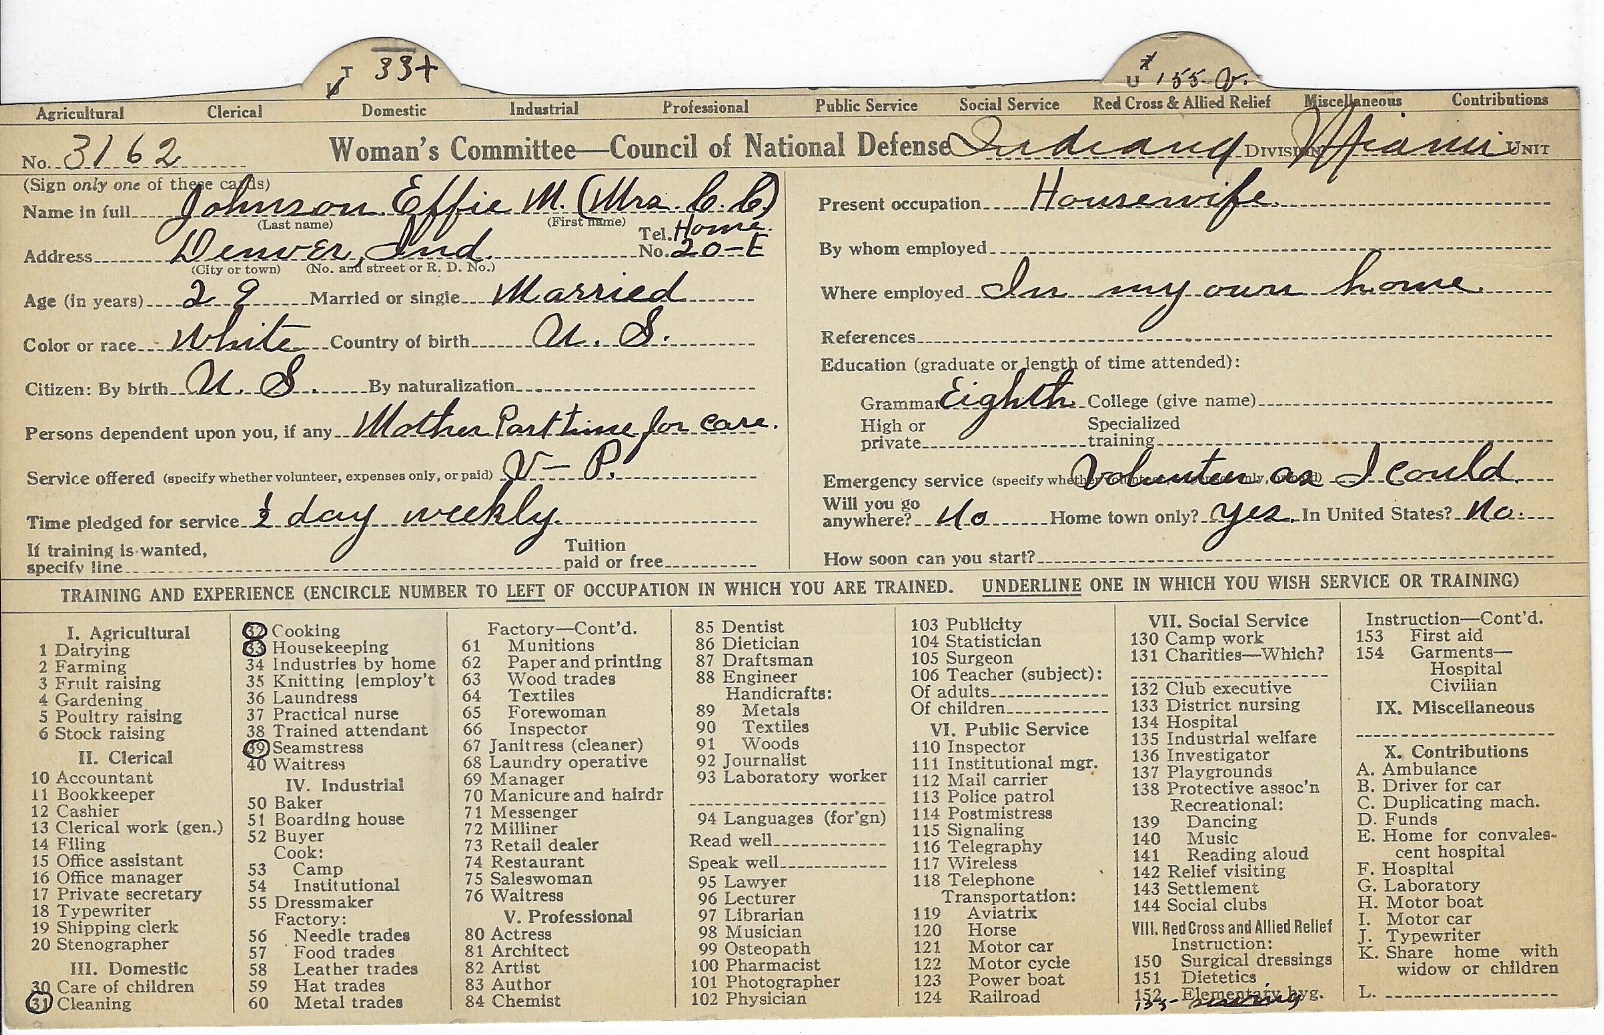 T 33+
U 155-V.
Agricultural Clerical Domestic Industrial Professional Public Service Social Service Red Cross & Allied Relief Miscellaneous Contributions
No. 3162 Woman's Committee—Council of National Defense Indiana DIVISION Miami UNIT
(Sign only one of these cards)
Name in full Johnson Effie M. (Mrs. C. C.)
(Last name) (First name)
Address Denver, Ind. Tel. No. Home. 20-E
(City or town) (No. and street or R. D. No.)
Age (in years) 29 Married or single Married
Color or race White Country of birth U. S.
Citizen: By birth U. S. By naturalization
Persons dependent upon you, if any Mother Part time for care.
Service offered (specify whether volunteer, expenses only, or paid) V — P.
Time pledged for service ½ day weekly.
If training is wanted, specify line Tuition paid or free
Present occupation Housewife.
By whom employed
Where employed In my own home.
References
Education (graduate or length of time attended):
Grammar Eighth College (give name)
High or private Specialized training
Emergency service (specify whether volunteer, expenses only, or paid) Volunteer as I could.
Will you go anywhere? No Home town only? yes. In United States? No.
How soon can you start?
TRAINING AND EXPERIENCE (ENCIRCLE NUMBER TO LEFT OF OCCUPATION IN WHICH YOU ARE TRAINED. UNDERLINE ONE IN WHICH YOU WISH SERVICE OR TRAINING)
I. Agricultural
1 Dairying
2 Farming
3 Fruit raising
4 Gardening
5 Poultry raising
6 Stock raising
II. Clerical
10 Accountant
11 Bookkeeper
12 Cashier
13 Clerical work (gen.)
14 Filing
15 Office assistant
16 Office manager
17 Private secretary
18 Typewriter
19 Shipping clerk
20 Stenographer
III. Domestic
30 Care of children
31 Cleaning
32 Cooking
33 Housekeeping
34 Industries by home
35 Knitting [employ't
36 Laundress
37 Practical nurse
38 Trained attendant
39 Seamstress
40 Waitress
IV. Industrial
50 Baker
51 Boarding house
52 Buyer
Cook:
53 Camp
54 Institutional
55 Dressmaker
Factory:
56 Needle trades
57 Food trades
58 Leather trades
59 Hat trades
60 Metal trades
Factory—Cont'd.
61 Munitions
62 Paper and printing
63 Wood trades
64 Textiles
65 Forewoman
66 Inspector
67 Janitress (cleaner)
68 Laundry operative
69 Manager
70 Manicure and hairdr
71 Messenger
72 Milliner
73 Retail dealer
74 Restaurant
75 Saleswoman
76 Waitress
V. Professional
80 Actress
81 Architect
82 Artist
83 Author
84 Chemist
85 Dentist
86 Dietician
87 Draftsman
88 Engineer
Handicrafts:
89 Metals
90 Textiles
91 Woods
92 Journalist
93 Laboratory worker
94 Languages (for'gn)
Read well
Speak well
95 Lawyer
96 Lecturer
97 Librarian
98 Musician
99 Osteopath
100 Pharmacist
101 Photographer
102 Physician
103 Publicity
104 Statistician
105 Surgeon
106 Teacher (subject):
Of adults
Of children
VI. Public Service
110 Inspector
111 Institutional mgr.
112 Mail carrier
113 Police patrol
114 Postmistress
115 Signaling
116 Telegraphy
117 Wireless
118 Telephone
Transportation:
119 Aviatrix
120 Horse
121 Motor car
122 Motor cycle
123 Power boat
124 Railroad
VII. Social Service
130 Camp work
131 Charities—Which?
132 Club executive
133 District nursing
134 Hospital
135 Industrial welfare
136 Investigator
137 Playgrounds
138 Protective assoc'n
Recreational:
139 Dancing
140 Music
141 Reading aloud
142 Relief visiting
143 Settlement
144 Social clubs
VIII. Red Cross and Allied Relief
Instruction:
150 Surgical dressings
151 Dietetics
152 Elementary hyg.
155- sewing
Instruction—Cont'd.
153 First aid
154 Garments—
Hospital
Civilian
IX. Miscellaneous
X. Contributions
A. Ambulance
B. Driver for car
C. Duplicating mach.
D. Funds
E. Home for convales-
cent hospital
F. Hospital
G. Laboratory
H. Motor boat
I. Motor car
J. Typewriter
K. Share home with
widow or children
L.